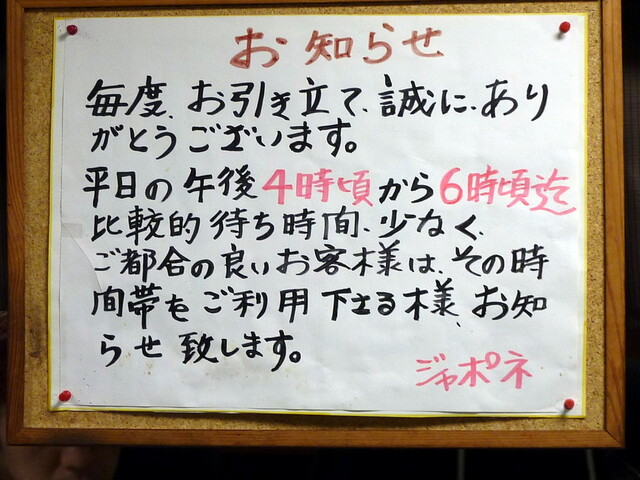 お知らせ
毎度、お引き立て、誠に、あり
がとうございます。
平日の午後4時頃から6時頃迄
比較的待ち時間、少なく、
ご都合の良いお客様は、その時
間帯をご利用下さる様、お知
らせ致します。
ジャポネ